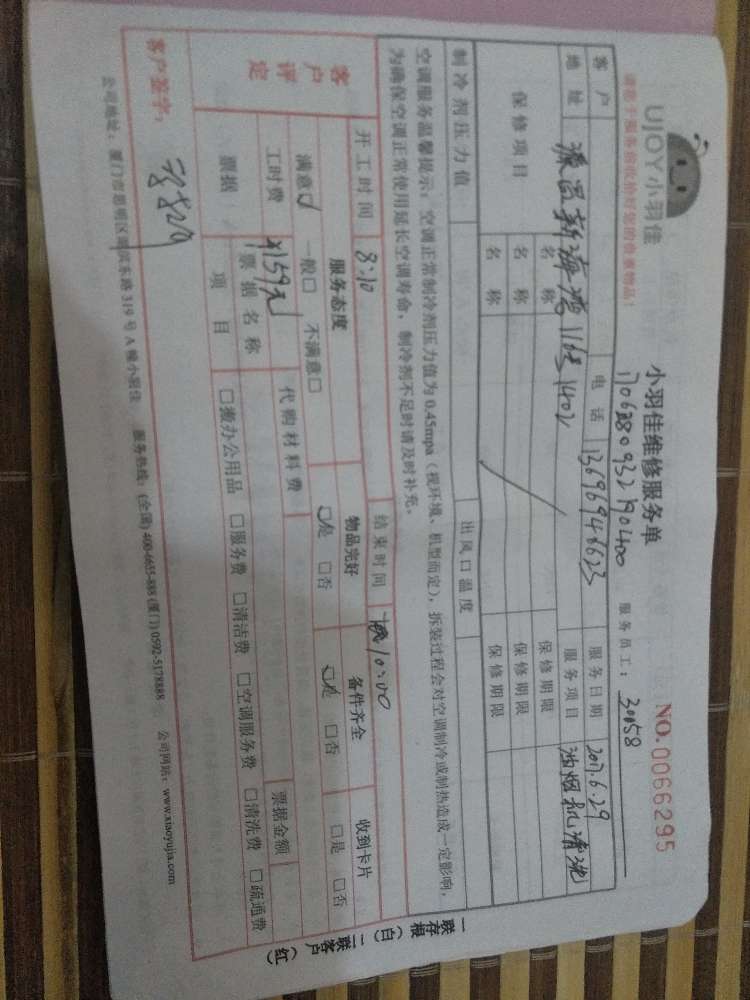 UJOY小羽佳
小羽佳维修服务单
NO.0066295
服务员工：30058
客户
电话 13696946623
服务日期 2017.6.29
地址
1402
服务项目 油烟机清洗
保修项目
名称
保修期限
名称
保修期限
名称
保修期限
制冷剂压力值
出风口温度
空调服务温馨提示：空调正常制冷剂压力值为0.45mpa（视环境、机型而定），拆装过程会对空调制冷或制热造成一定影响，
为确保空调正常使用延长空调寿命，制冷剂不足时请及时补充。
开工时间 8:10
结束时间 10:00
客户评定
服务态度
物品完好
备件齐全
收到卡片
满意☑ 一般□ 不满意□
☑是 □否
☑是 □否
□是 □否
工时费 ¥159元
代购材料费
票据金额
票据
票据名称
项目
□搬办公用品 □服务费 □清洁费 □空调服务费 □清洗费 □疏通费
客户签字：
服务热线：(全国) 400-6655-888 (厦门) 0592-5178888
公司网站：www.xiaoyujia.com
一联存根（白） 二联客户（红）